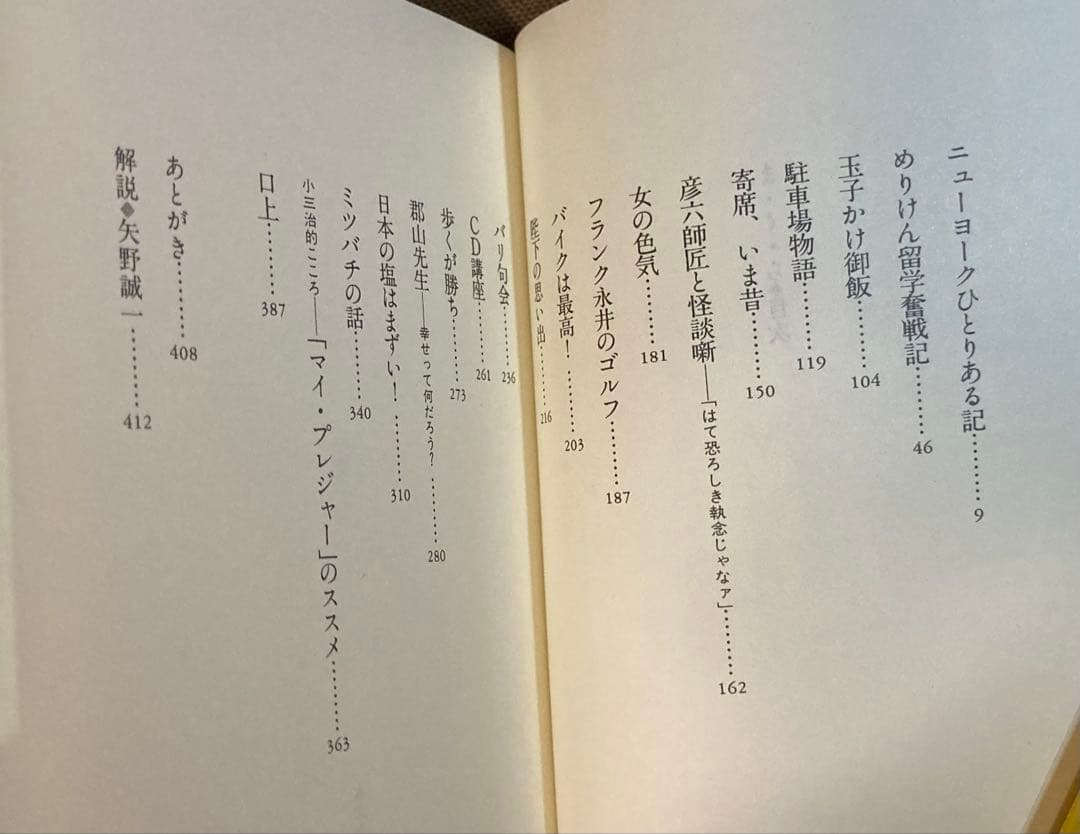 ニューヨークひとりある記…………9
めりけん留学奮戦記…………46
玉子かけ御飯…………104
駐車場物語…………119
寄席、いま昔…………150
彦六師匠と怪談噺――「はて恐ろしき執念じゃなァ」…………162
女の色気…………181
フランク永井のゴルフ…………187
バイクは最高！…………203
陛下の思い出…………216
パリ句会…………236
CD講座…………261
歩くが勝ち…………273
郡山先生――幸せって何だろう？…………280
日本の塩はまずい！…………310
ミツバチの話…………340
小三治的こころ――「マイ・プレジャー」のススメ…………363
口上…………387
あとがき…………408
解説◆矢野誠一…………412